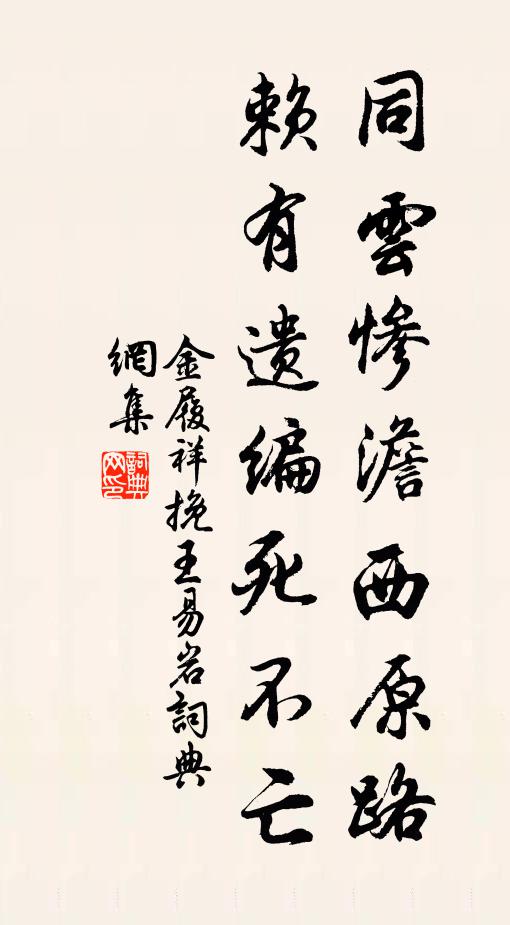 同雲慘澹西原路
賴有遺編死不亡
金履祥挽王易岩詞典
網集
詞典
網印